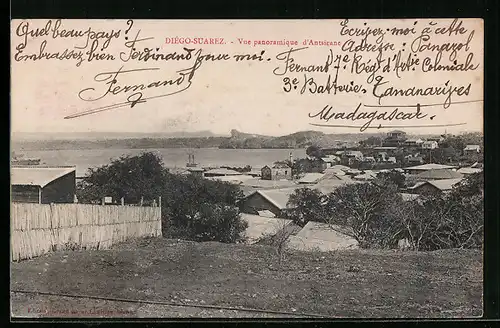 Quel beau pays?
Embrassez bien Ferdinand pour moi.
Fernand
DIÉGO-SUAREZ. - Vue panoramique d'Antsirane
Ecrivez-moi à cette
Adresse: Panazol
Fernand 7e Régt d'Art. Coloniale
3e Batterie. Tananarives
Madagascar.